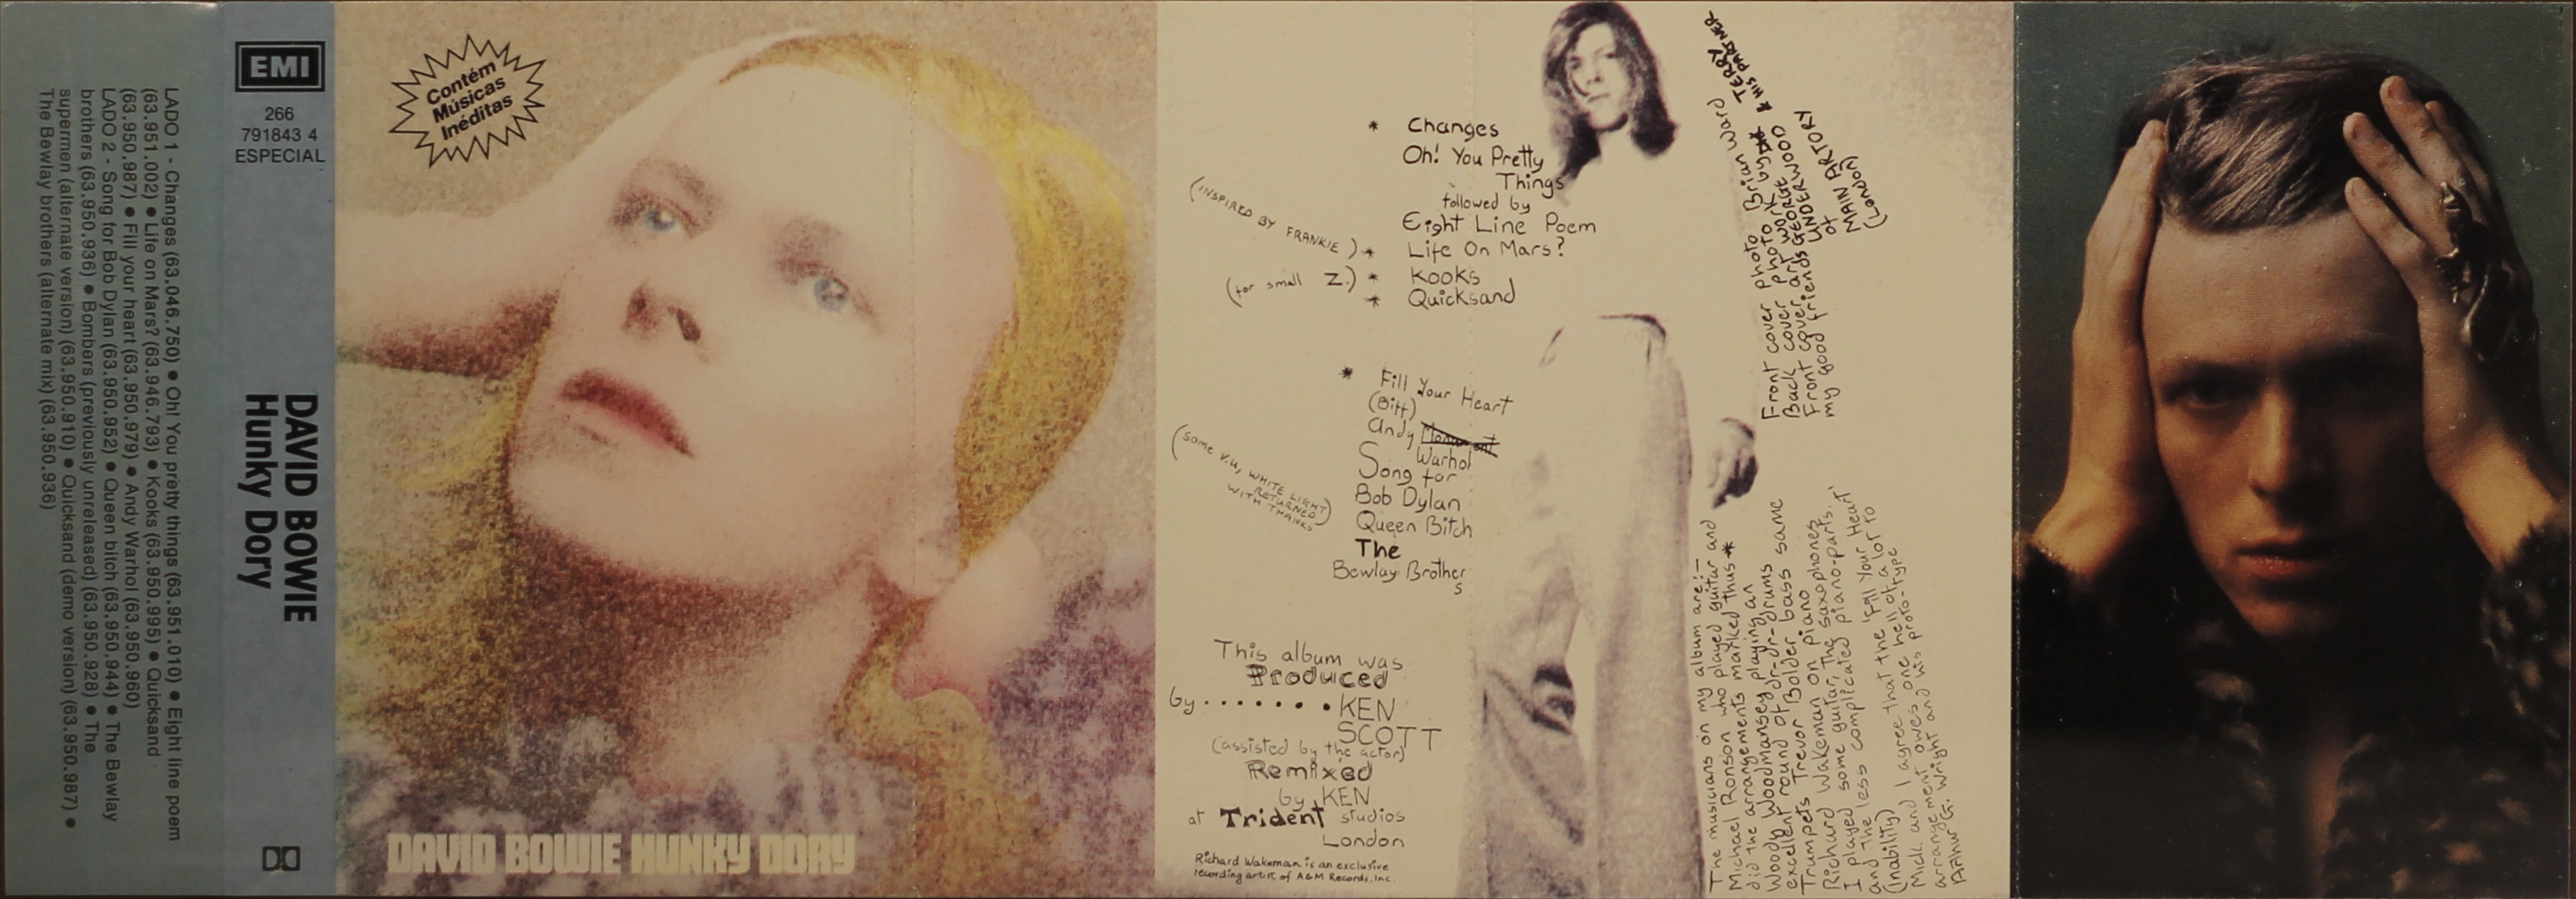 LADO 1 - Changes (63.046.750) ● Oh! You pretty things (63.951.010) ● Eight line poem
(63.951.002) ● Life on Mars? (63.946.793) ● Kooks (63.950.995) ● Quicksand
(63.950.987) ● Fill your heart (63.950.979) ● Andy Warhol (63.950.960)
LADO 2 - Song for Bob Dylan (63.950.952) ● Queen bitch (63.950.944) ● The Bewlay
brothers (63.950.936) ● Bombers (previously unreleased) (63.950.928) ● The
supermen (alternate version) (63.950.910) ● Quicksand (demo version) (63.950.987) ●
The Bewlay brothers (alternate mix) (63.950.936)
EMI
266
791843 4
ESPECIAL
DAVID BOWIE
Hunky Dory
Contém
Músicas
Inéditas
DAVID BOWIE HUNKY DORY
* Changes
Oh! You Pretty
Things
followed by
Eight Line Poem
(INSPIRED BY FRANKIE) * Life On Mars?
(for small Z.) * Kooks
* Quicksand
* Fill Your Heart
(Biff)
Andy
Warhol
Song for
Bob Dylan
(some V.U, WHITE LIGHT
RETURNED
WITH THANKS)
Queen Bitch
The
Bewlay Brother
s
This album was
Produced
by.......KEN
SCOTT
(assisted by the actor)
Remixed
by KEN
at Trident studios
London
Richard Wakeman is an exclusive
recording artist of A&M Records, Inc.
Front cover photo Brian Ward
Back cover photo by
Front cover art work by TERRY
& HIS PARTNER
my good friends GEORGE UNDERWOOD
of
MAIN ARTORY
(London)
The musicians on my album are:-
Michael Ronson who played guitar and
did the arrangements marked thus *
Woody Woodmansey playing an
excellent round of dr-dr-drums
Trumpets Trevor Bolder bass same
Richard Wakeman on piano
I played some guitar, the saxophones
and the less complicated piano-parts.
(inability) I agree that the 'Fill Your Heart'
arrangement owes one hell of a lot to
Arthur G. Wright and his proto-type
Mick and